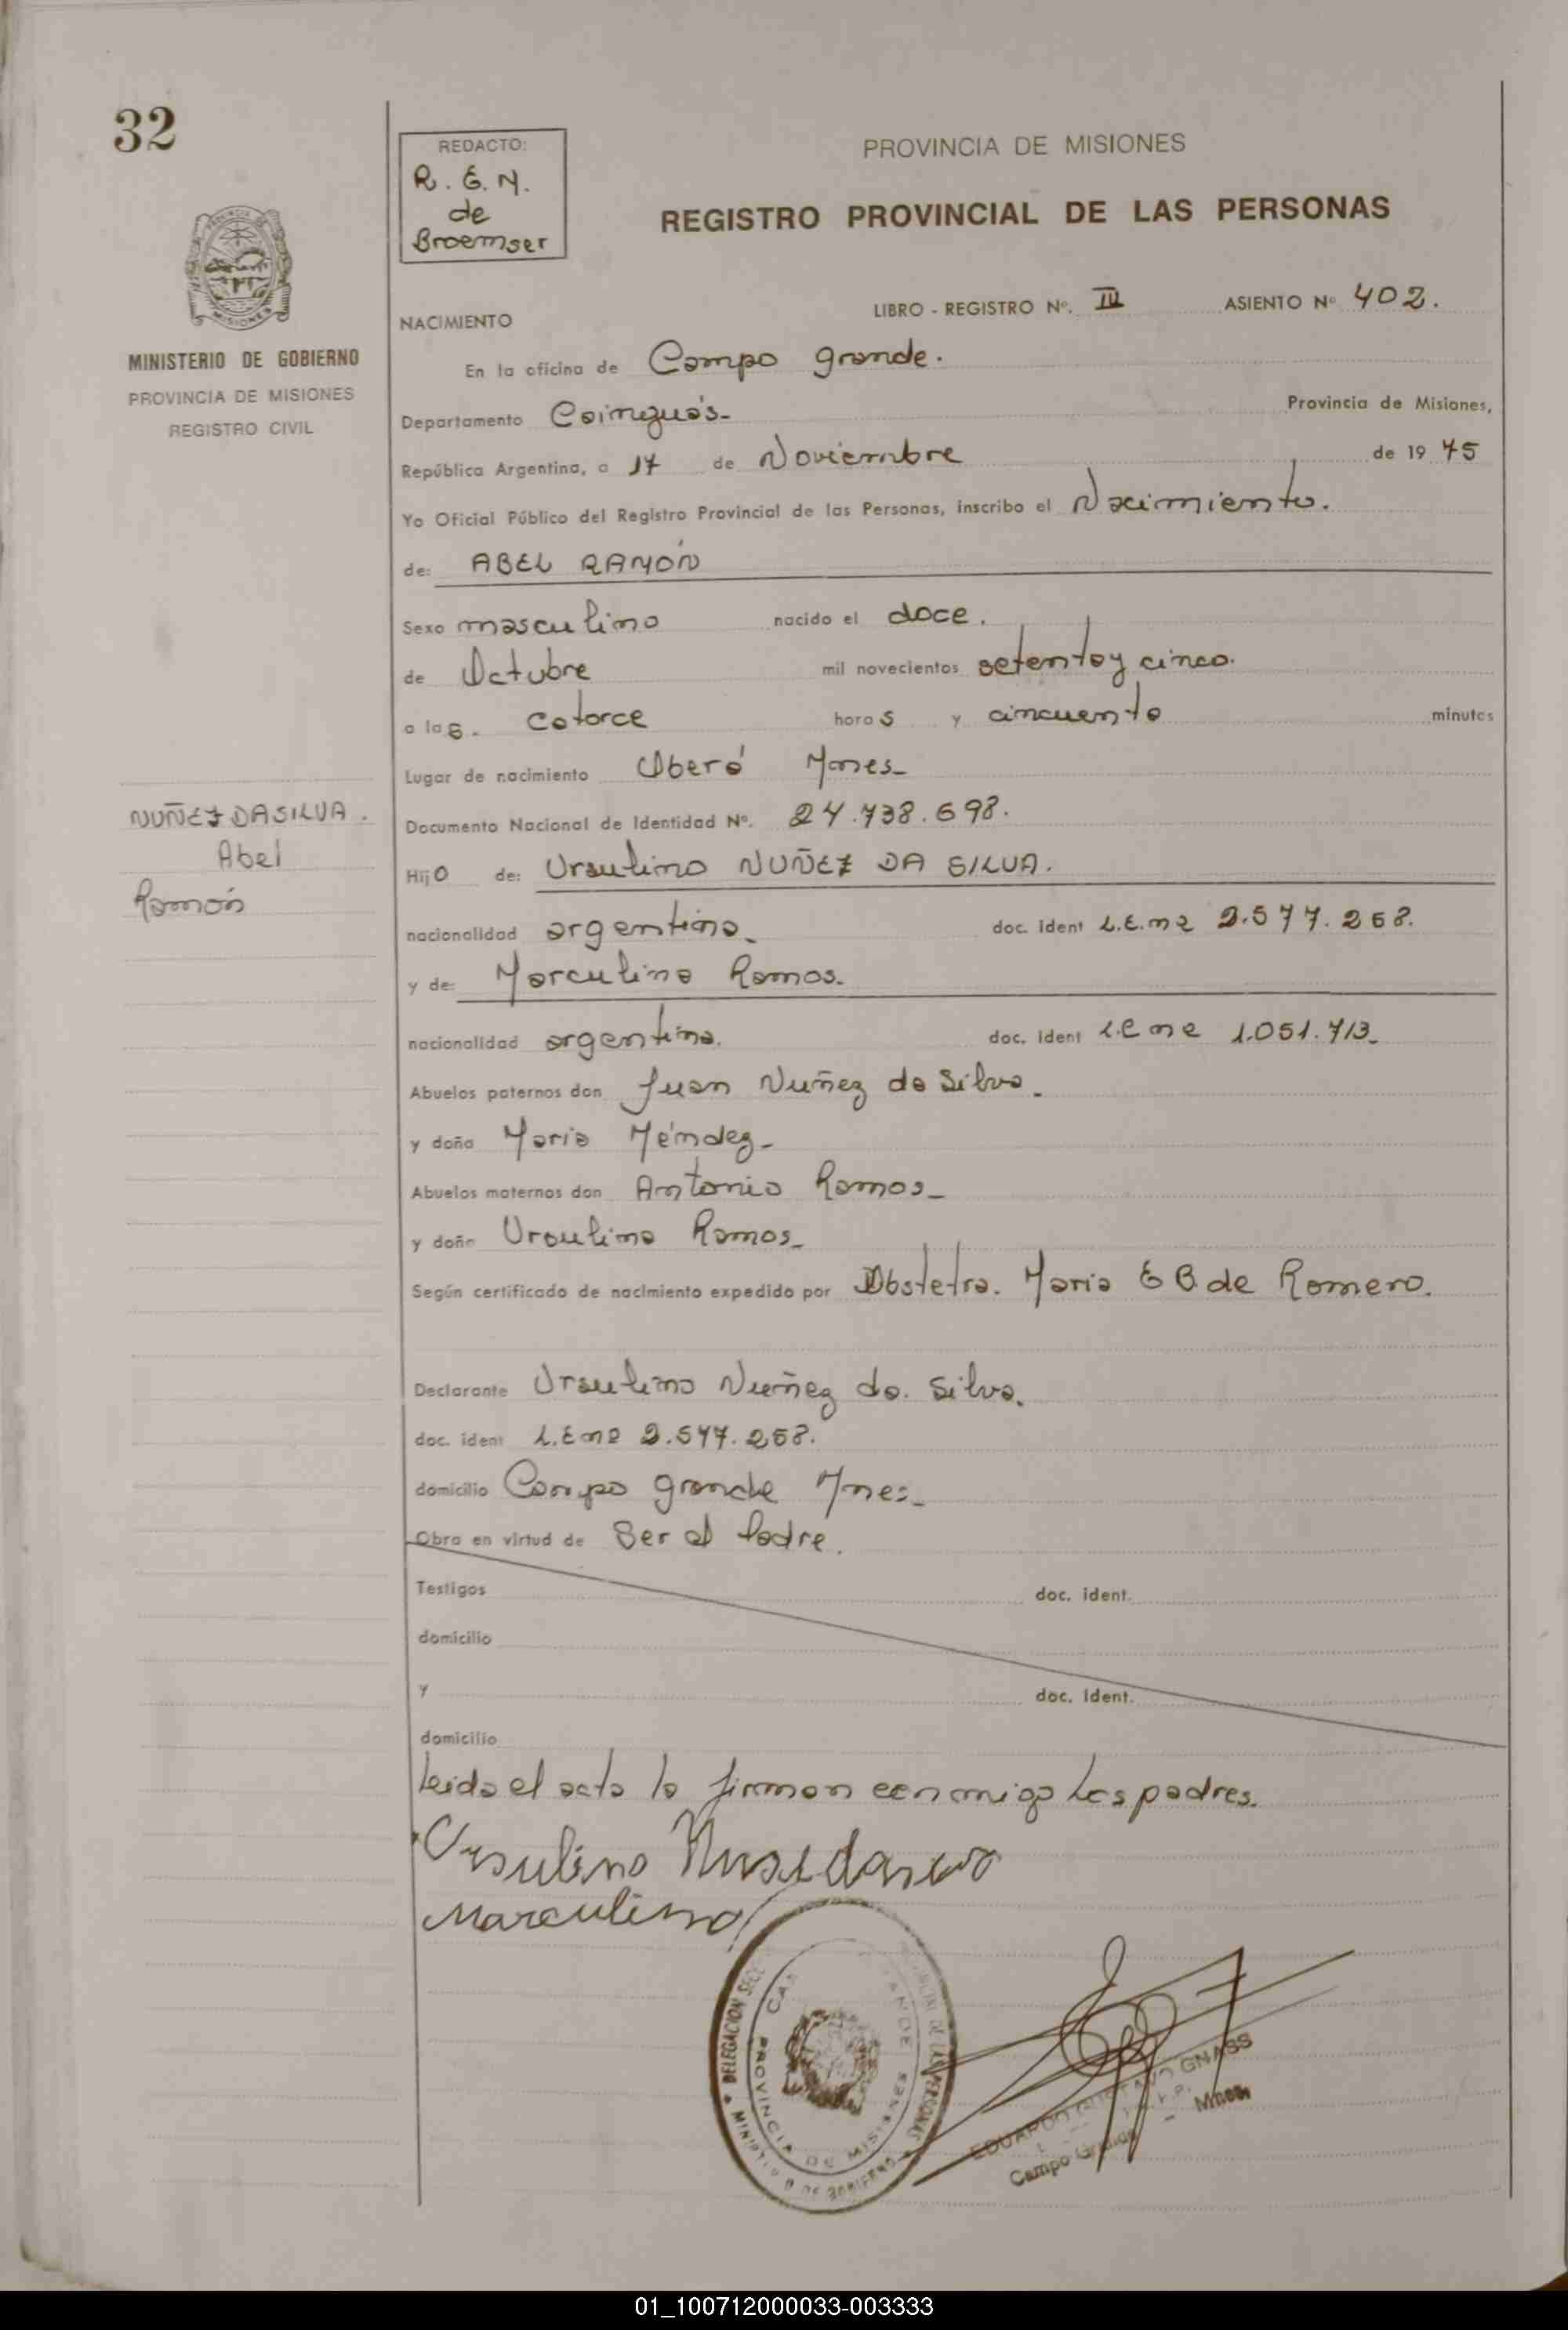 32
REDACTO:
R. E. M.
de
Broemser
PROVINCIA DE MISIONES
REGISTRO PROVINCIAL DE LAS PERSONAS
MINISTERIO DE GOBIERNO
PROVINCIA DE MISIONES
REGISTRO CIVIL
NACIMIENTO LIBRO - REGISTRO Nº. III ASIENTO Nº 402.
En la oficina de Campo grande.
Departamento Cainguás- Provincia de Misiones,
República Argentina, a 17 de Noviembre de 19 75
Yo Oficial Público del Registro Provincial de las Personas, inscribo el Nacimiento.
de: ABEL RAMÓN
Sexo masculino nacido el doce.
de Octubre mil novecientos setenta y cinco.
a las. catorce horas y cincuenta minutos
Lugar de nacimiento Oberá Mnes-
NUÑEZ DA SILVA.
Abel
Ramón
Documento Nacional de Identidad Nº. 24.738.698.
Hijo de: Ursulino NUÑEZ DA SILVA.
nacionalidad argentina. doc. ident L.E. nº 2.577.268.
y de: Marculina Ramos.
nacionalidad argentina. doc. ident L.C nº 1.051.713.
Abuelos paternos don Juan Nuñez da Silva.
y doña Maria Méndez-
Abuelos maternos don Antonio Ramos-
y doña Ursulina Ramos-
Según certificado de nacimiento expedido por Obstetra. Maria E B. de Romero.
Declarante Ursulino Nuñez da. Silva.
doc. ident L.E nº 2.577.268.
domicilio Campo grande Mnes-
Obra en virtud de Ser el Padre.
Testigos doc. ident.
domicilio
y doc. ident.
domicilio
Leida el acta la firman conmigo los padres.
Ursulino
Marculina
DELEGACION
PROVINCIA DE MISIONES
EDUARDO GUSTAVO GNASS
Campo Grande - Mnes.
01_100712000033-003333